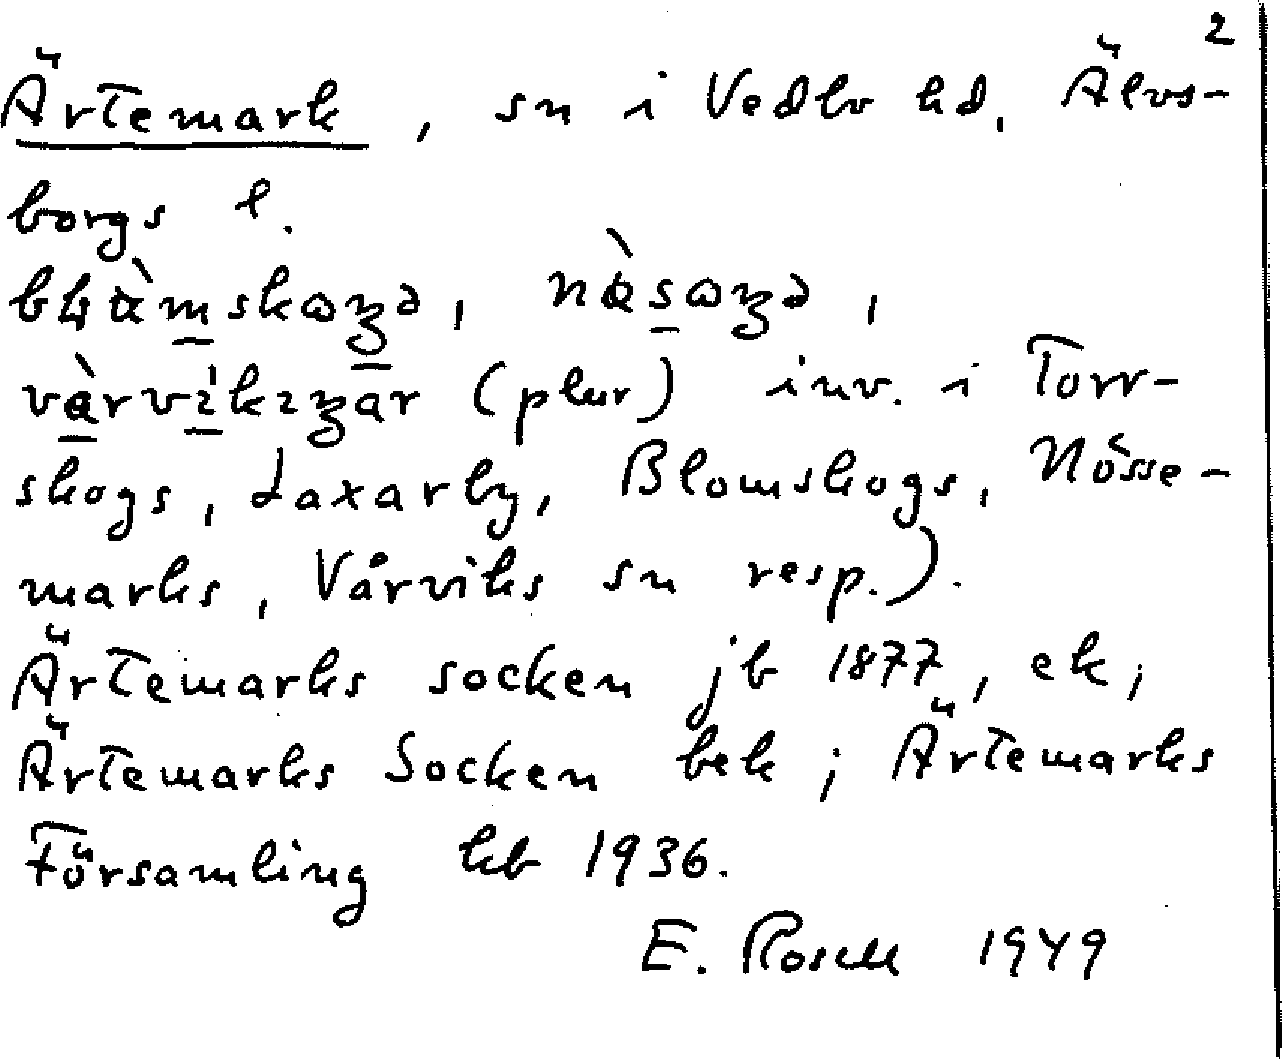 2
Ärtemark, sn i Vedbo hd, Älvs-
borgs l.
(plur) inv. i Torr-
skogs, Laxarby, Blomskogs, Nösse-
marks, Vårviks sn resp.).
Ärtemarks socken jb 1877, ek;
Ärtemarks Socken bek; Ärtemarks
Församling kb 1936.
E. Rosell 1949